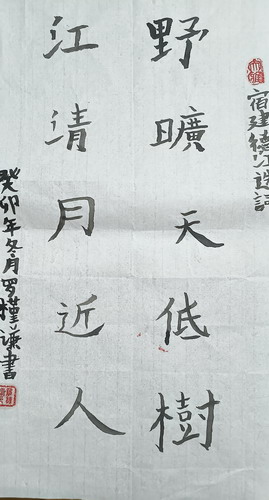 宿建德江选词
野曠天低樹
江清月近人
癸卯年冬月罗槿谦書